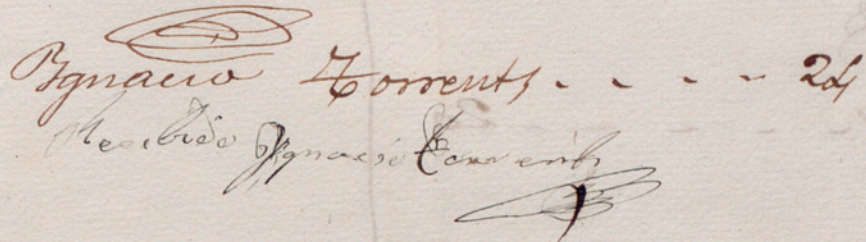 Ygnacio Torrents - - - - 24
Recibido Ygnacio Torrents